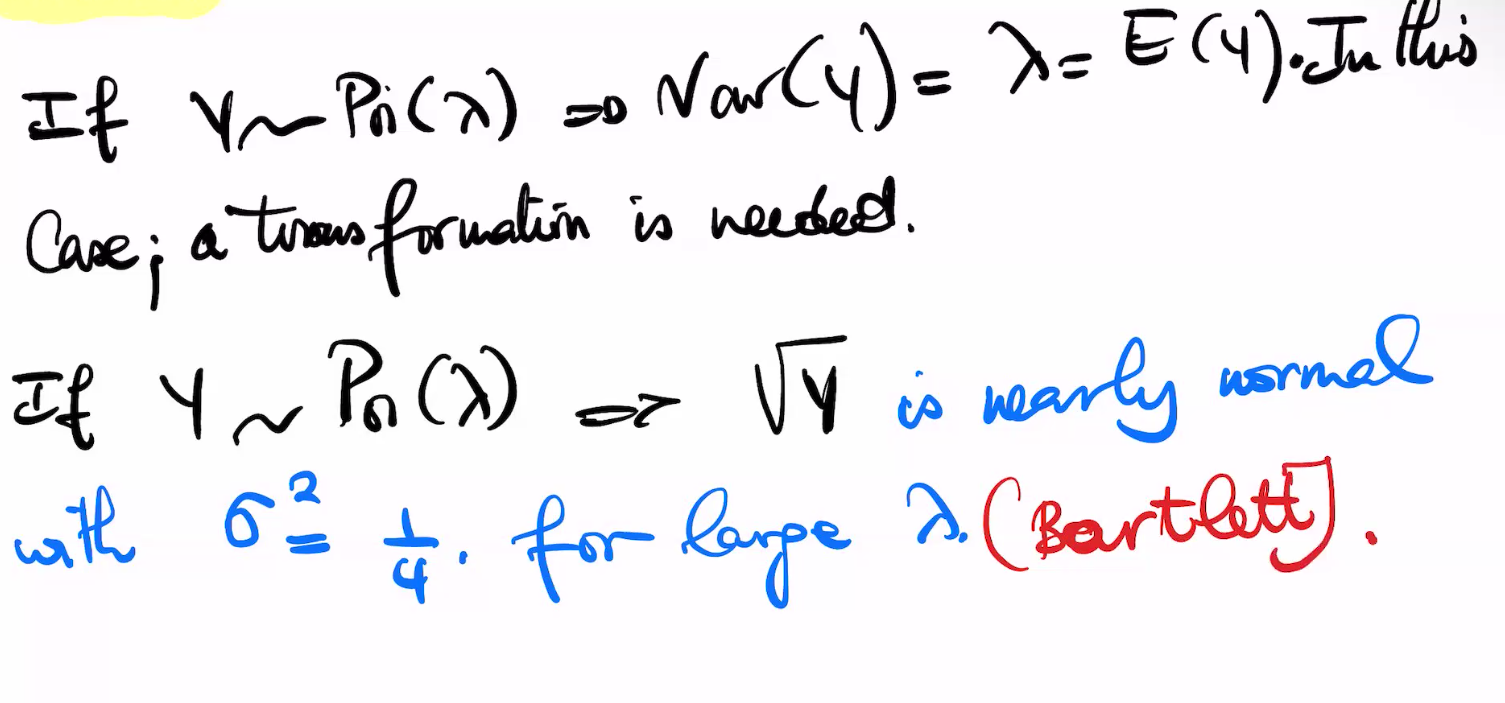 If Y ~ Poi(λ) ⇒ Var(Y) = λ = E(Y). In this
Case; a transformation is needed.
If Y ~ Poi(λ) ⇒ √Y is nearly normal
with σ² = 1/4. for large λ. (Bartlett).